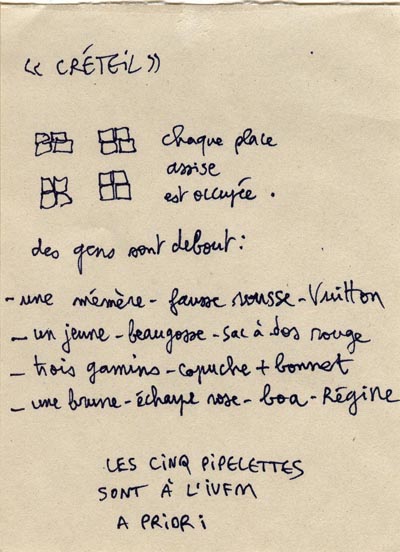 « CRÉTEIL »
chaque place
assise
est occupée .
des gens sont debout :
- une mémère - fausse rousse - Vuitton
- un jeune - beaugosse - sac à dos rouge
- trois gamins - capuche + bonnet
- une brune - écharpe rose - boa - Régine
LES CINQ PIPELETTES
SONT À L'IUFM
A PRIORI